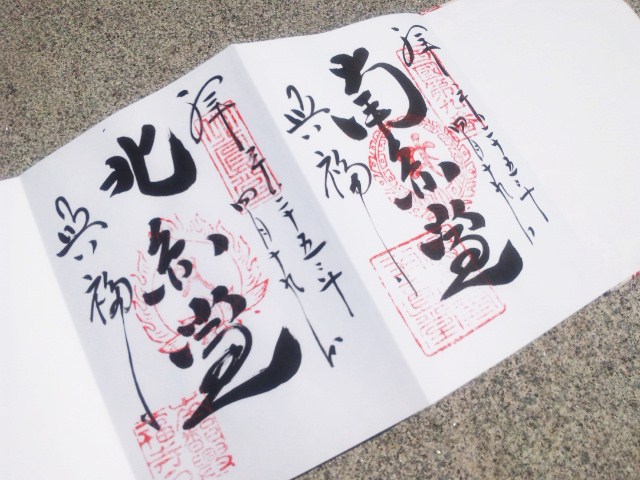 拝 平成二十五年四月十九日
南円堂
興福寺
拝 平成二十五年四月十九日
北円堂
興福寺